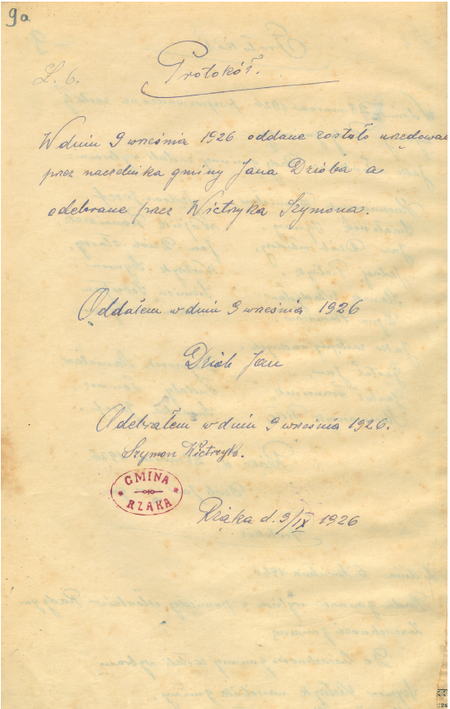 9a
L. 6.
Protokół.
W dniu 9 września 1926 oddane zostało urzędowanie
przez naczelnika gminy Jana Dzióba a
odebrane przez Wietrzyka Szymona.
Oddałem w dniu 9 września 1926
Dziób Jan
Odebrałem w dniu 9 września 1926.
Szymon Wietrzyk.
GMINA
RZAKA
Rząka d. 9/IX 1926